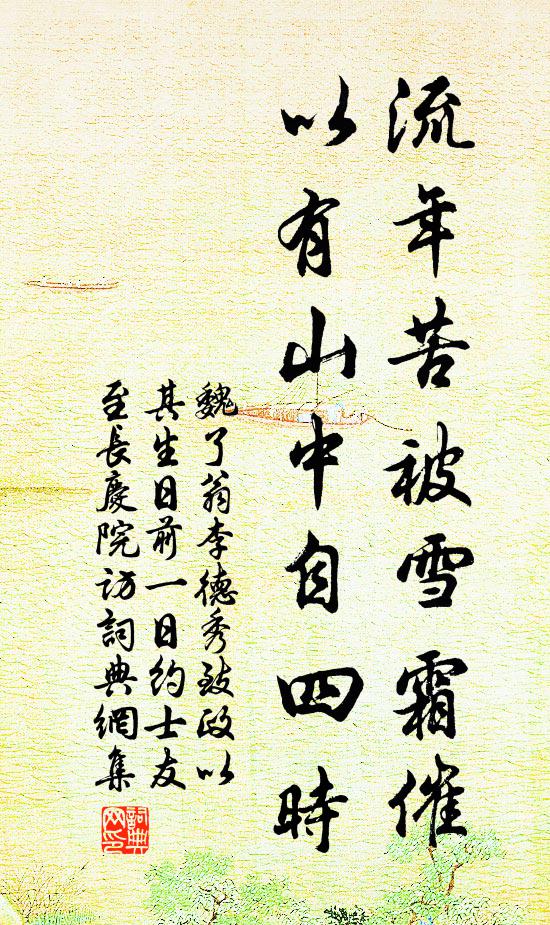 流年苦被雪霜催
以有山中自四時
魏了翁李德秀致政以
其生日前一日約士友
至長慶院訪詞典網集
詞典
网印